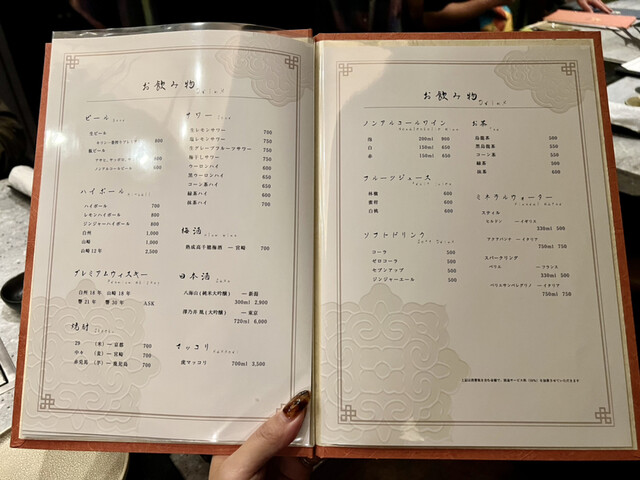 お飲み物
ビール
生ビール
キリン一番搾りプレミアム 800
瓶ビール
ノンアルコールビール 800
ハイボール
ハイボール 700
レモンハイボール 800
ジンジャーハイボール 800
白州 1,000
山崎 1,000
山崎 12年 2,500
プレミアムウィスキー
白州 18年 山崎 18年
響 21年 響 30年 ASK
焼酎
29 (米) ー京都 700
中々 (麦) ー宮崎 700
赤兎馬 (芋) ー鹿児島 700
サワー
生レモンサワー 700
塩レモンサワー 750
生グレープフルーツサワー 750
梅干しサワー 700
ウーロンハイ 600
黒ウーロンハイ 650
コーン茶ハイ 650
緑茶ハイ 600
抹茶ハイ 700
梅酒
熟成高千穂梅酒 ー宮崎 700
日本酒
八海山 (純米大吟醸) ー新潟
300ml 2,900
澤乃井 凰 (大吟醸) ー東京
720ml 6,000
マッコリ
虎マッコリ 700ml 3,500
お飲み物
ノンアルコールワイン
泡 200ml 800
白 150ml 650
赤 150ml 650
フルーツジュース
林檎 600
蜜柑 600
白桃 600
ソフトドリンク
コーラ 500
ゼロコーラ 500
セブンアップ 500
ジンジャーエール 500
お茶
烏龍茶 500
黒烏龍茶 500
コーン茶 550
緑茶 500
抹茶 600
ミネラルウォーター
スティル
ヒルドン ーイギリス
330ml 500
アクアパンナ ーイタリア
750ml 750
スパークリング
ペリエ ーフランス
330ml 500
ペリエサンペレグリノ ーイタリア
750ml 750